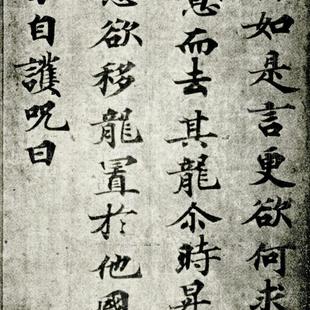 如是言更欲何求
而去其龍尒時昇
欲移龍置於他國
自護呪曰